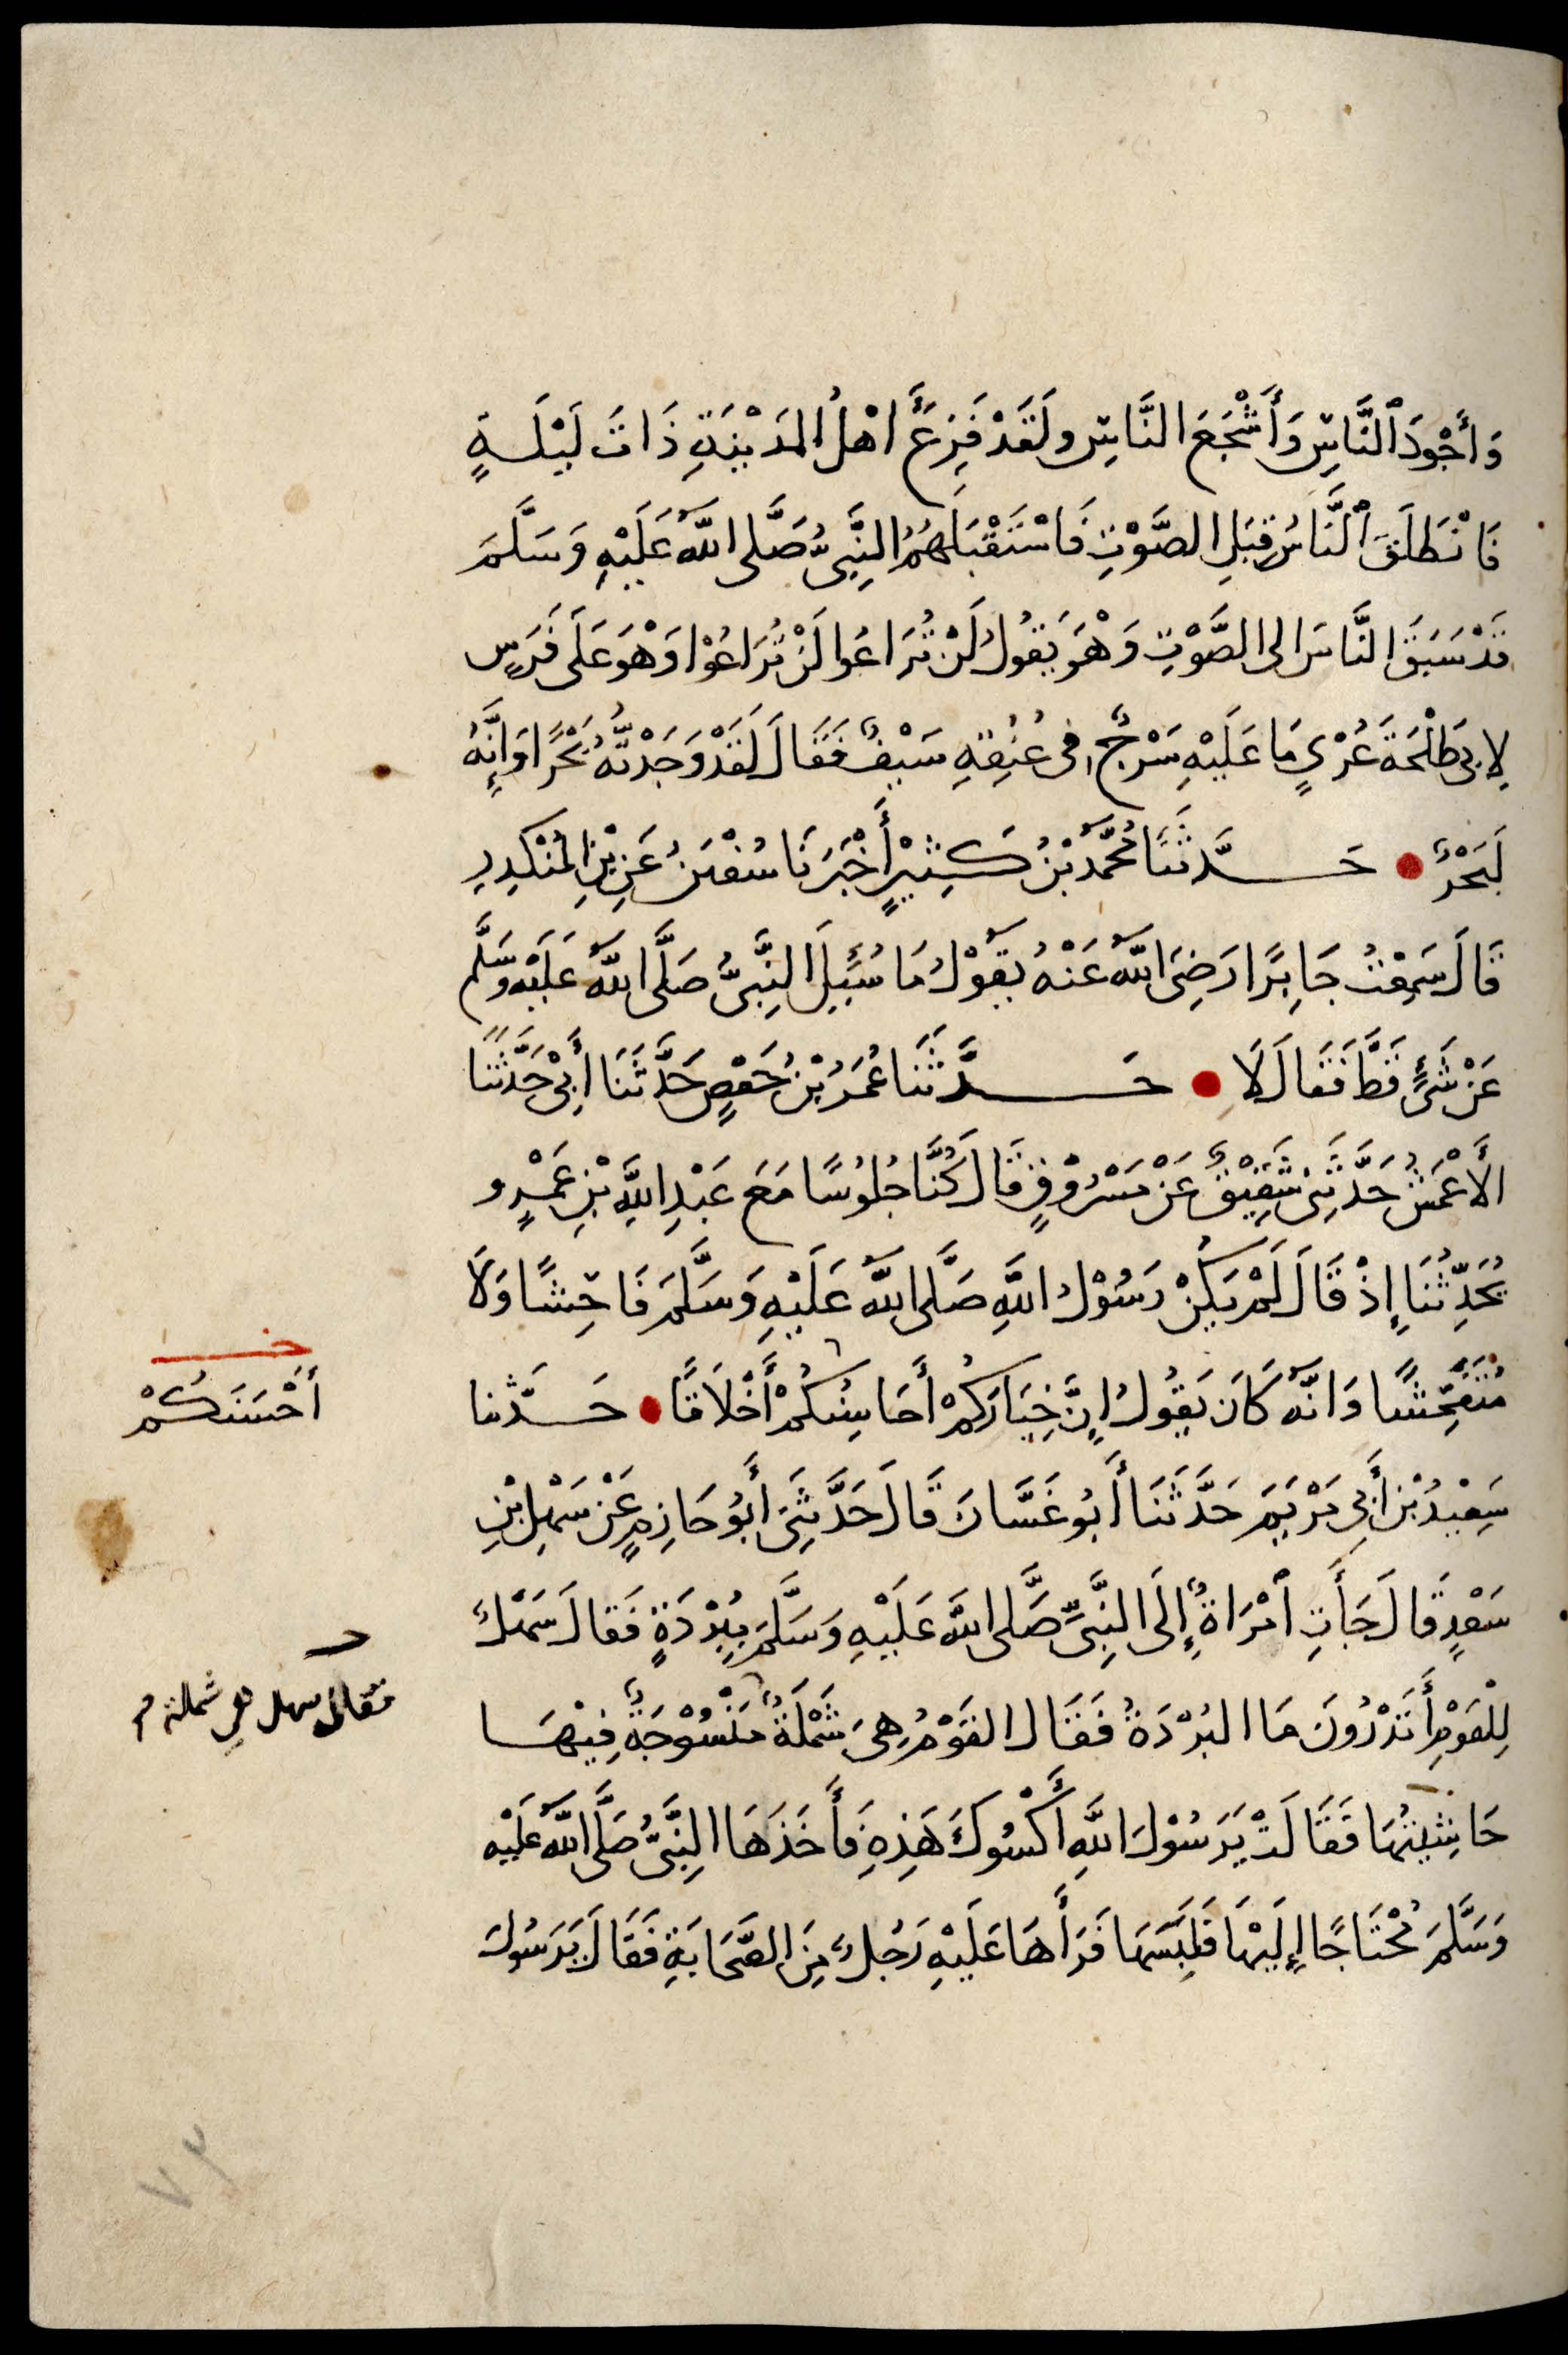 وَأَجْوَدَ ٱلنَّاسِ وَأَشْجَعَ النَّاسِ ولَقَدْ فَزِعَ أَهْلُ المَدِيْنَةِ ذَاتَ لَيْلَةٍ
فَانْطَلَقَ ٱلنَّاسُ قِبَلِ الصَّوْتِ فَاسْتَقْبَلَهُمُ النَّبِىُّ صَلَّى اللَّهُ عَلَيْهِ وَسَلَّمَ
قَدْ سَبَقَ النَّاسَ الى الصَّوْتِ وَهْوَ يَقُولُ لَنْ تُرَاعُوا لَنْ تُرَاعُوْا وَهْوَ عَلَى فَرَسٍ
لِابى طَلْحَةَ عُرْىٍ مَا عَلَيْهِ سَرْجٌ فى عُنُقِهِ سَيْفٌ فَقَالَ لَقَدْ وَجَدْتُهُ بَحْرًا وَإِنَّهُ
لَبَحْرٌ • حَدَّثَنَا مُحَمَّدُ بْنُ كَثِيْرٍ أَخْبَرَنَا سُفْيٰنُ عَنِ بْنِ المُنْكَدِرِ
قَالَ سَمِعْتُ جَابِرًا رَضِىَ اللَّهُ عَنْهُ يَقُوْلُ مَا سُئِلَ النَّبِىُّ صَلَّى اللَّهُ عَلَيْهِ وَسَلَّم
عَنْ شَىْءٍ قَطُّ فَقَالَ لَا • حَدَّثَنَا عُمَرُ بْنُ حَفْصٍ حَدَّثَنَا أَبِىْ حَدَّثَنَا
الأَعْمَشُ حَدَّثَنِى شَقِيْقٌ عَنْ مَسْرُوْقٍ قَالَ كُنَّا جُلُوسًا مَعَ عَبْدِ اللَّهِ بْنِ عَمْرٍو
يُحَدِّثُنَا إِذْ قَالَ لَمْ يَكُنْ رَسُوْلُ اللَّهِ صَلَّى اللَّهُ عَلَيْهِ وَسَلَّمَ فَاحِشًا وَلَا
مُتَفَحِّشًا وَانَّهُ كَانَ يَقُولُ إِنَّ خِيَارَكُمْ أَحَاسِنُكُمْ أَخْلَاقًا • حَدَّثنا
خـ
أَحْسَنَكُمْ
سَعِيْدُ بْنُ أَبِى مَرْيَمَ حَدَّثَنَا أَبُو غَسَّانَ قَالَ حَدَّثَنِى أَبُو حَازِمٍ عَنْ سَهْلِ بْنِ
سَعْدٍ قَالَ جَأَتِ ٱمْرَاةٌ إِلَى النَّبِىِّ صَلَّى اللَّهُ عَلَيْهِ وَسَلَّمَ بِبُرْدَةٍ فَقَالَ سَهْلٌ
لِلْقَوْمِ أَتَدْرُونَ مَا البُرْدَةُ فَقَالَ القَوْمُ هِىَ شَمْلَةٌ مَنْسُوْجَةٌ فِيْهَا
فقال سهل هى شملة م
حَاشِيَتُهَا فَقَالَتْ يَرَسُوْلَ اللَّهِ أَكْسُوكَ هَذِهِ فَأَخَذَهَا النَّبِىُّ صَلَّى اللَّهُ عَلَيْهِ
وَسَلَّمَ مُحْتَاجًا إِلَيْهَا فَلَبِسَهَا فَرَأَهَا عَلَيْهِ رَجُلٌ مِنَ الصَّحَابَةِ فَقَالَ يَرَسُولَ
٧٣